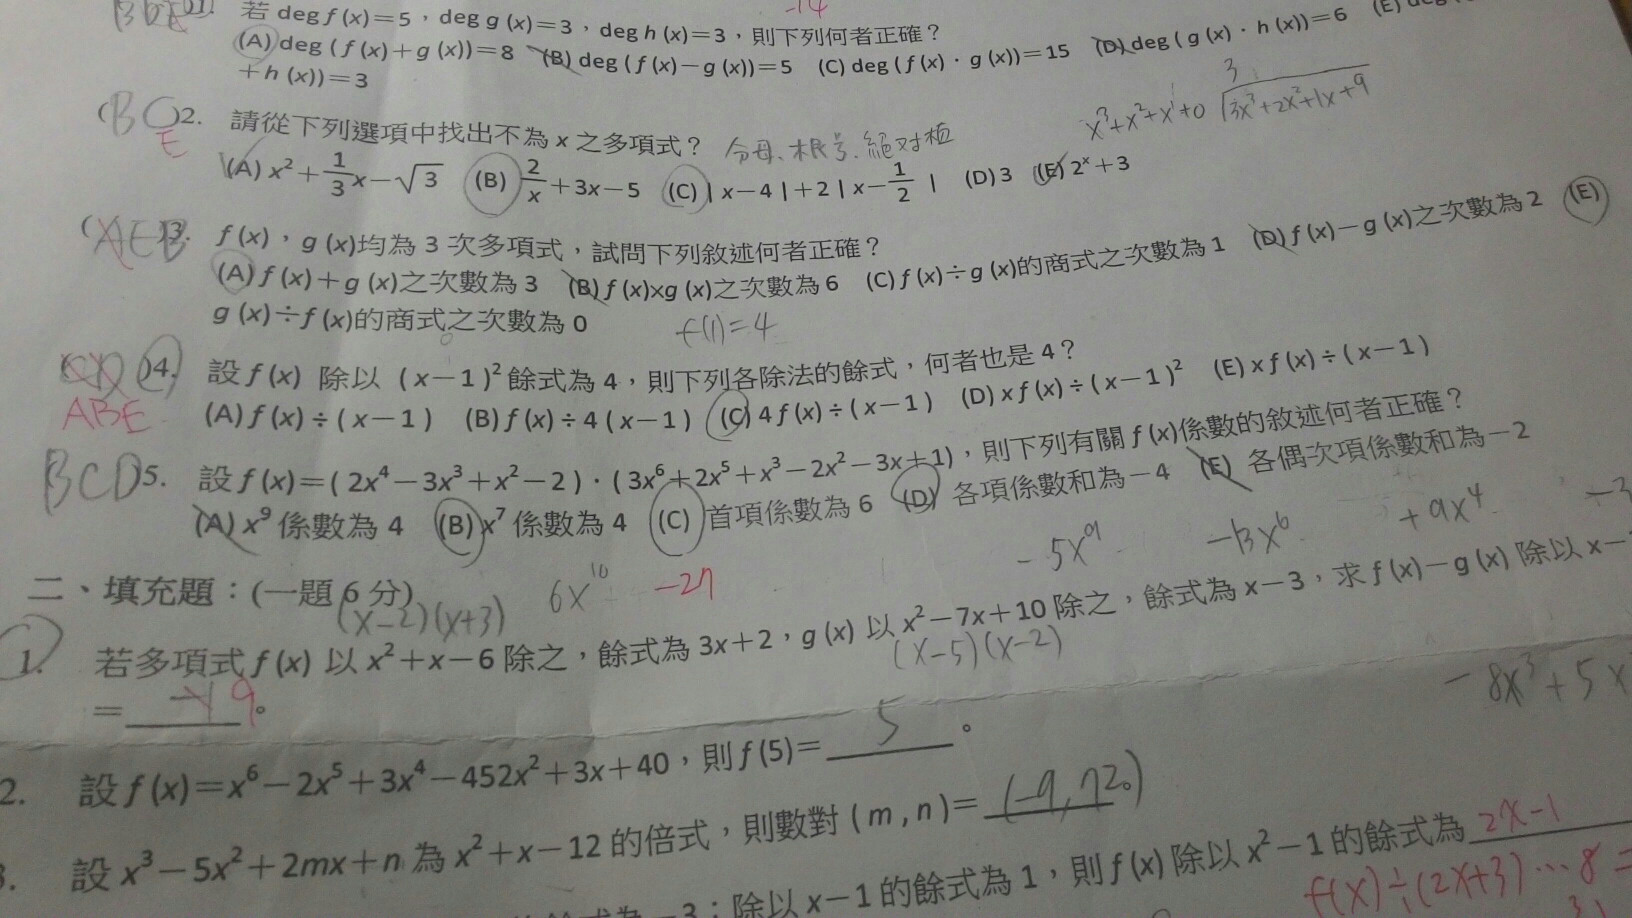 -14
若 deg f (x)=5，deg g (x)=3，deg h (x)=3，則下列何者正確？
(A) deg ( f (x)+g (x))=8 (B) deg ( f (x)-g (x))=5 (C) deg ( f (x)．g (x))=15 (D) deg ( g (x)．h (x))=6 (E)
+h (x))=3
x³+x²+x¹+0 3x³+2x²+1x+9
3
BC
E
2. 請從下列選項中找出不為 x 之多項式？ 分母、根号、絕対值
(A) x²+1/3x-√3 (B) 2/x+3x-5 (C) | x-4 |+2 | x-1/2 | (D) 3 (E) 2ˣ+3
AEB
3. f (x)，g (x)均為 3 次多項式，試問下列敘述何者正確？
(A) f (x)+g (x)之次數為 3 (B) f (x)×g (x)之次數為 6 (C) f (x)÷g (x)的商式之次數為 1 (D) f (x)-g (x)之次數為 2 (E)
g (x)÷f (x)的商式之次數為 0
f(1)=4
4. 設 f (x) 除以 (x-1)² 餘式為 4，則下列各除法的餘式，何者也是 4？
ABE
(A) f (x)÷(x-1) (B) f (x)÷4 (x-1) (C) 4 f (x)÷(x-1) (D) x f (x)÷(x-1)² (E) x f (x)÷(x-1)
BCD
5. 設 f (x)=( 2x⁴-3x³+x²-2 )．( 3x⁶+2x⁵+x³-2x²-3x+1)，則下列有關 f (x)係數的敘述何者正確？
(A) x⁹ 係數為 4 (B) x⁷ 係數為 4 (C) 首項係數為 6 (D) 各項係數和為-4 (E) 各偶次項係數和為-2
6x¹⁰ -5x⁹ -13x⁶ +9x⁴ -3
-27
二、填充題：(一題 6 分)
(x-2)(x+3)
1. 若多項式 f (x) 以 x²+x-6 除之，餘式為 3x+2，g (x) 以 x²-7x+10 除之，餘式為 x-3，求 f (x)-g (x) 除以 x-
(x-5)(x-2)
= 9。
-8x³+5x
2. 設 f (x)=x⁶-2x⁵+3x⁴-452x²+3x+40，則 f (5)= 5 。
設 x³-5x²+2mx+n 為 x²+x-12 的倍式，則數對 ( m , n )= (-9,72。)
-3；除以 x-1 的餘式為 1，則 f (x) 除以 x²-1 的餘式為 2x-1
f(x)÷(2x+3)…8=